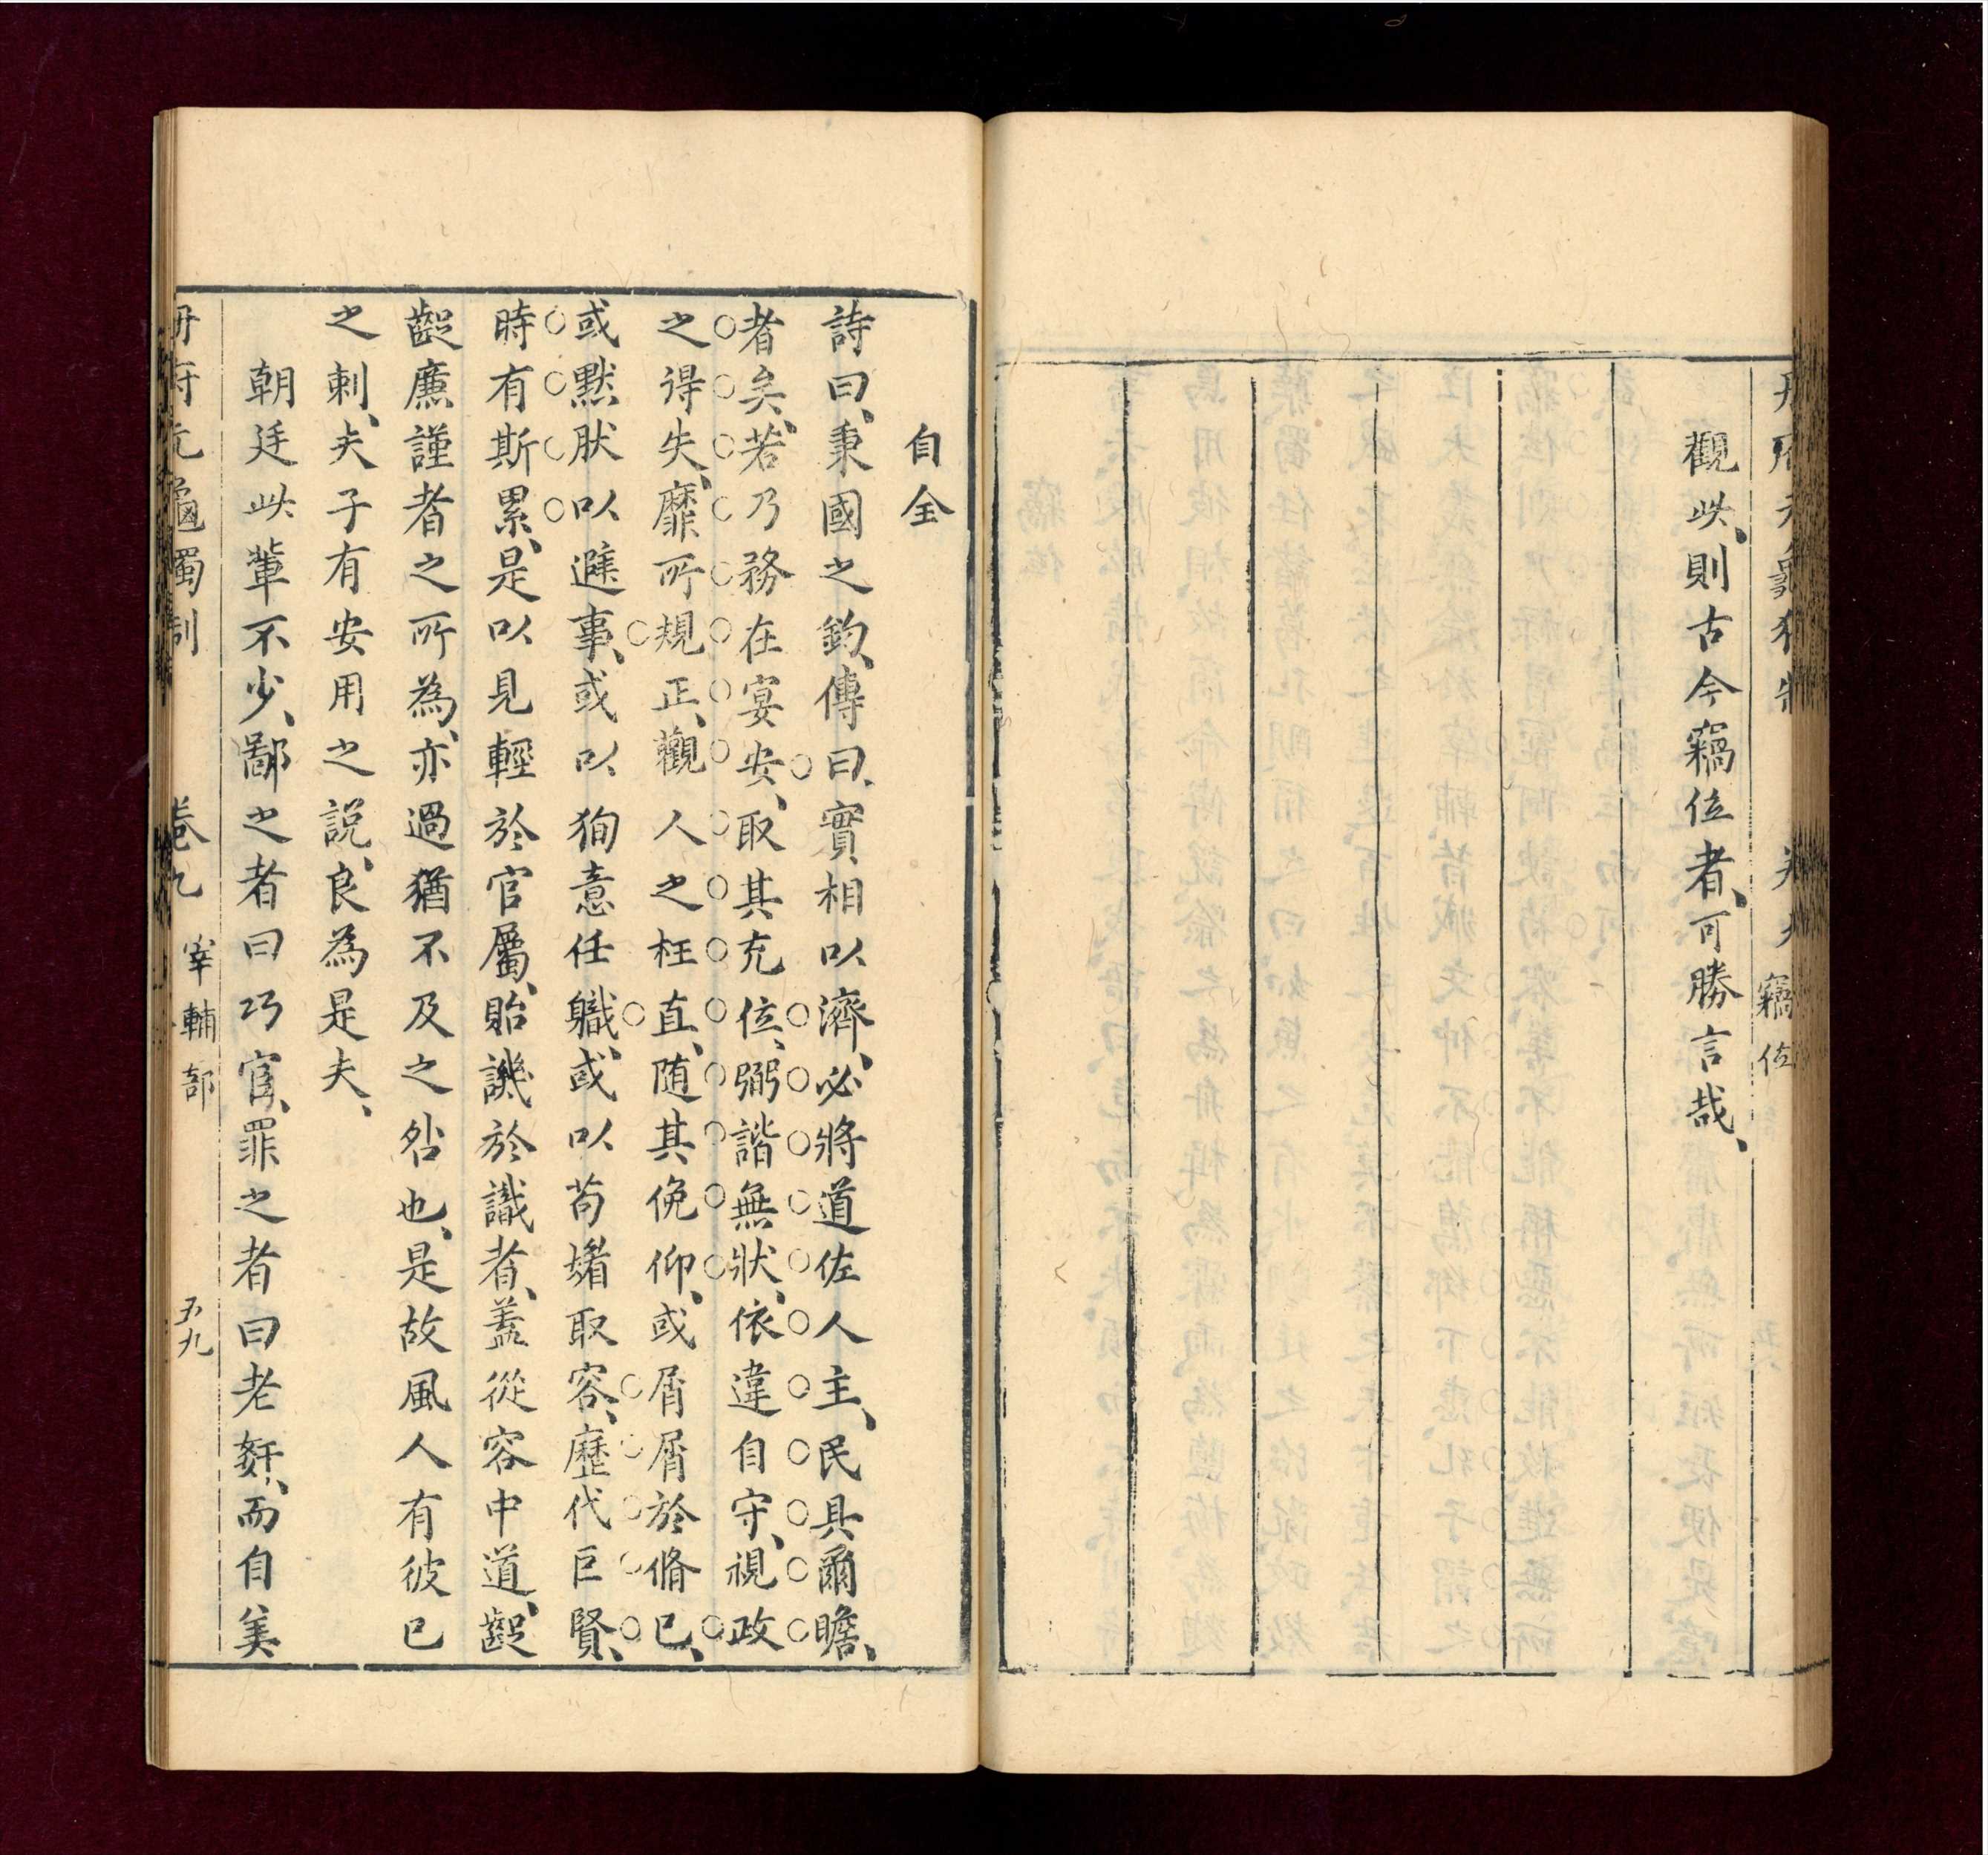 竊位
觀此、則古今竊位者、可勝言哉、
自全
詩曰、秉國之鈞、傳曰、實相以濟、必將道佐人主、民具爾瞻、
者矣、若乃務在宴安、取其充位、弼諧無狀、依違自守、視政
之得失、靡所規正、觀人之枉直、随其俛仰、或屑屑於脩已、
或默肰以避事、或以狥意任職、或以苟媮取容、歷代巨賢、
時有斯累、是以見輕於官屬、貽譏於識者、盖從容中道、齪
齪廉謹者之所為、亦過猶不及之咎也、是故風人有彼已
之刺、夫子有安用之說、良為是夫、
朝廷此輩不少、鄙之者曰巧宦、罪之者曰老姧、而自美
冊府元龜獨制 卷九 宰輔部 五九